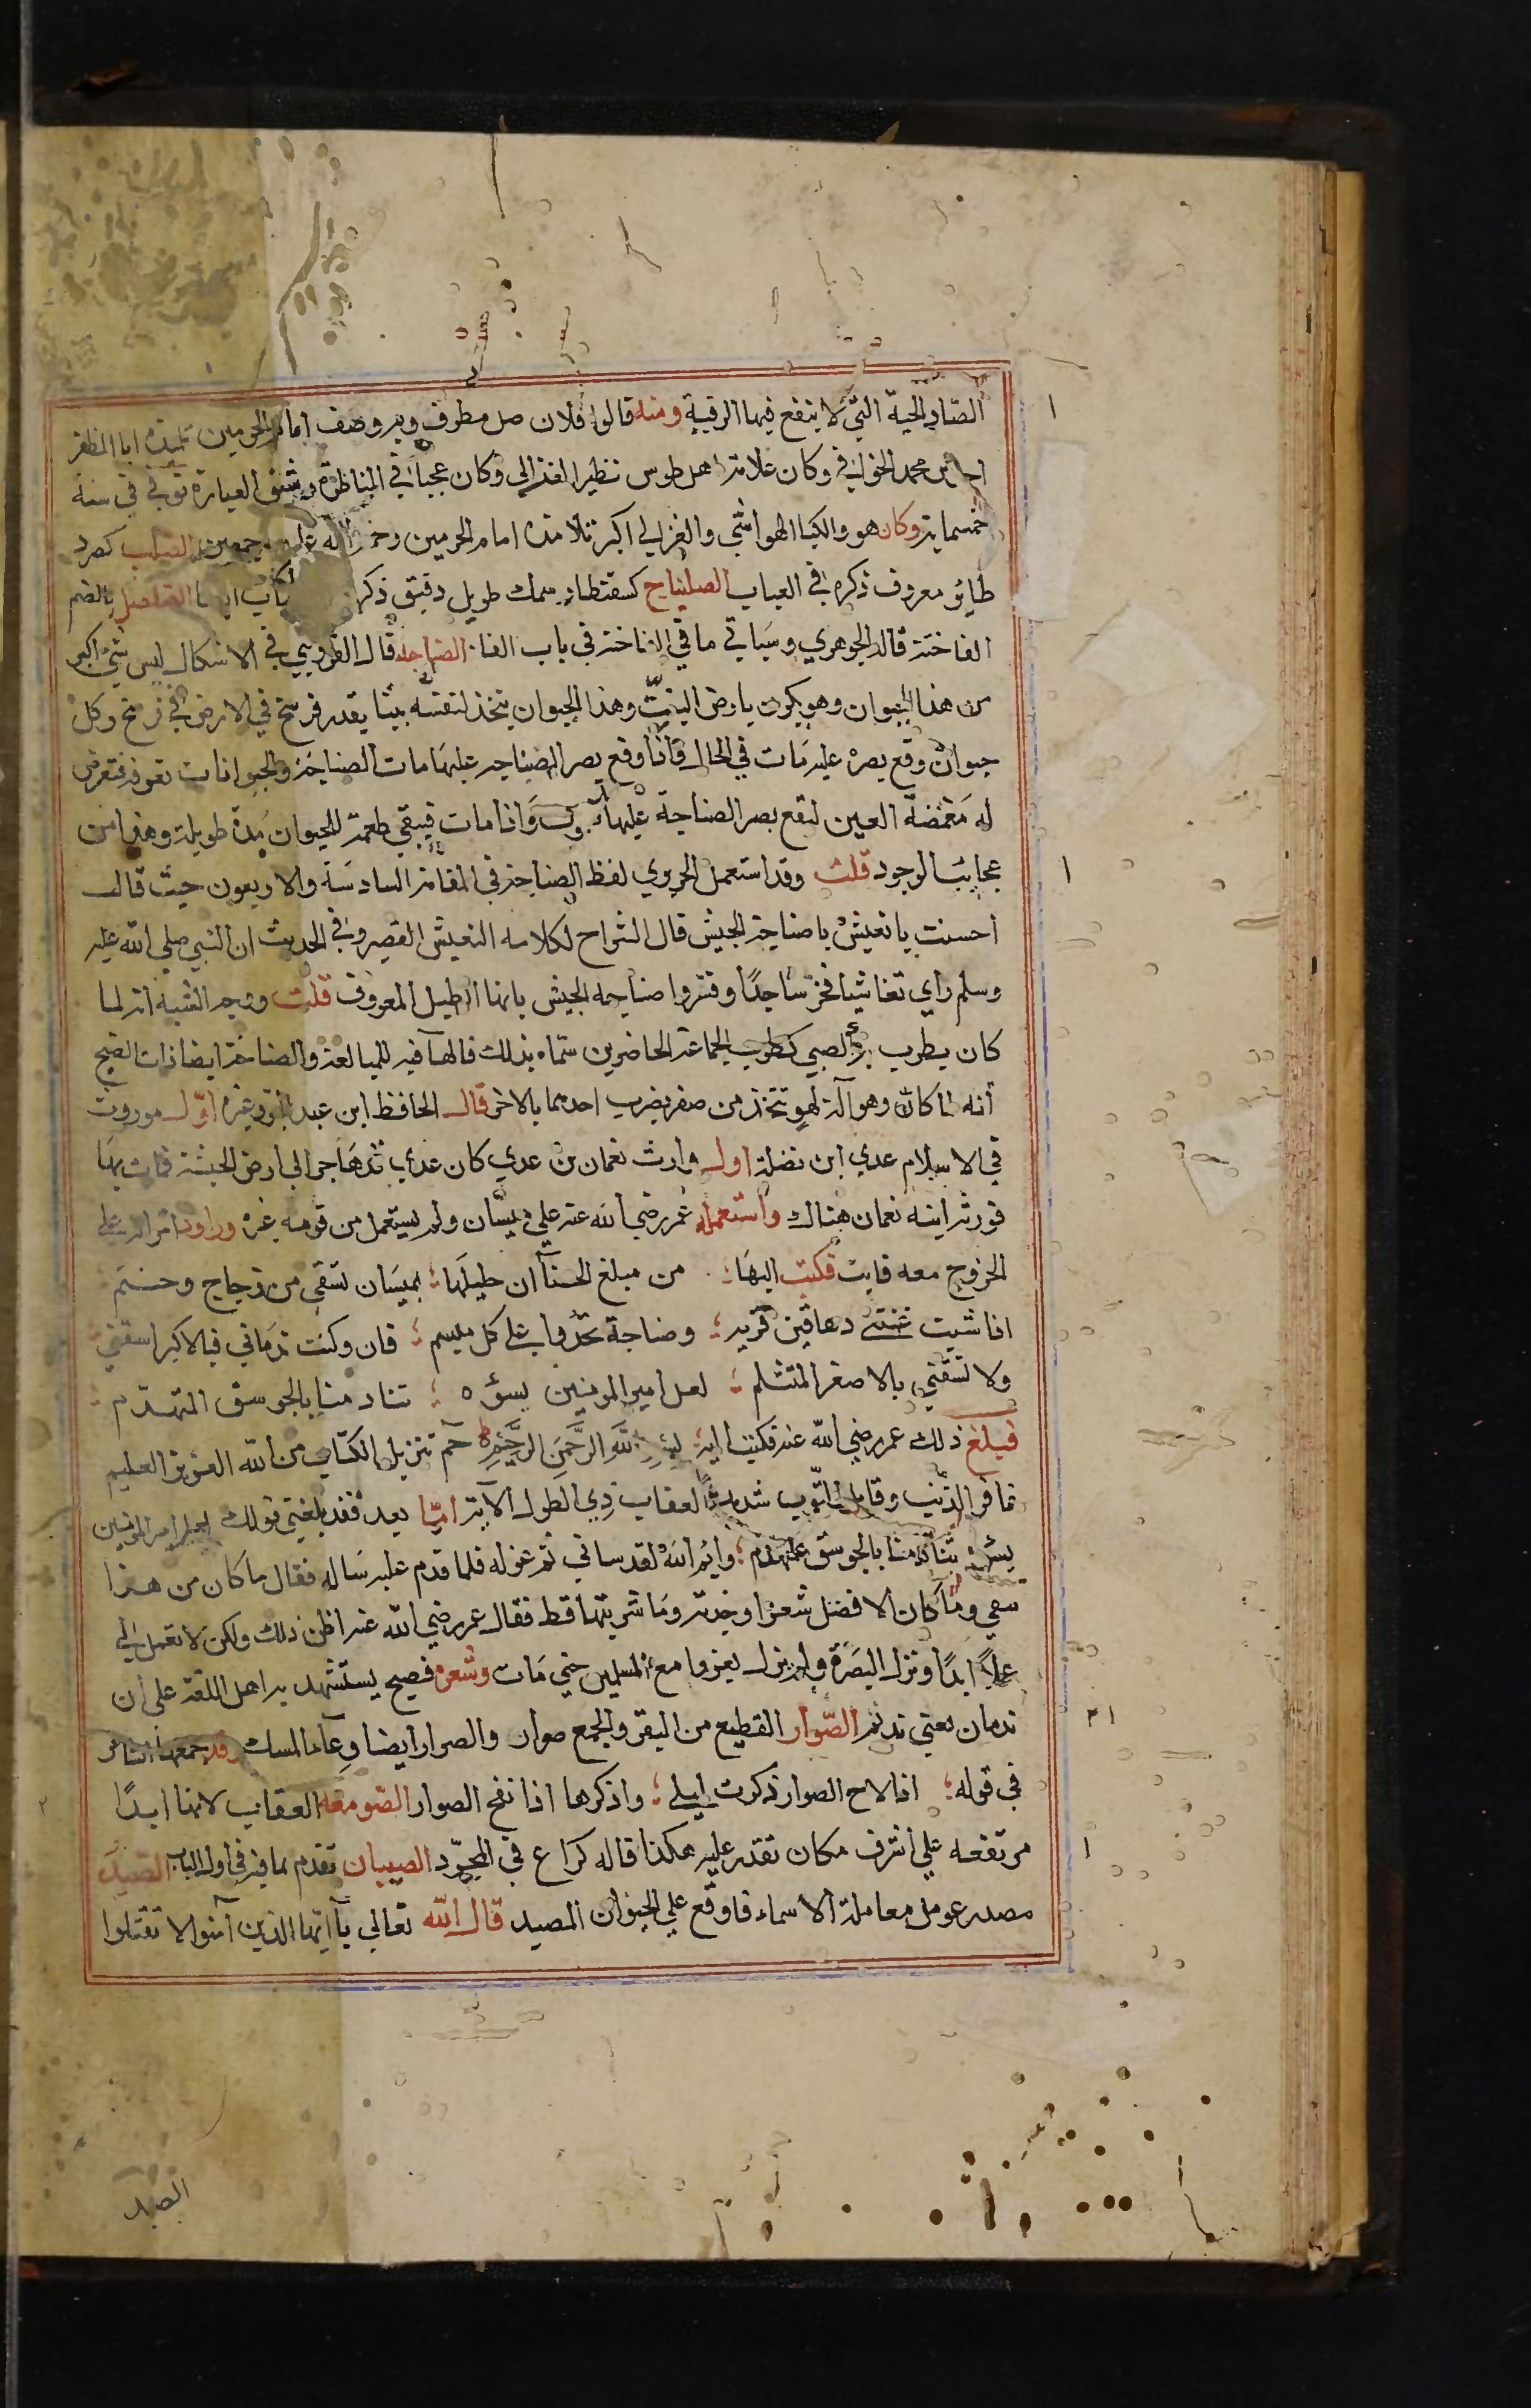 الصّاد الحية التي لا ينفع فيها الرقية ومنه قالوا فلان صل مطرف وبه وصف امام الحرمين تلميذه ابا المظفر
بن محمد الخوافي وكان علامة اهل طوس نظير الغزالي وكان عجبا في المناظرة رشيق العبارة توفي في سنة
خمسماية وكان هو والكيا الهراشي والغزالي اكبر تلامذة امام الحرمين رحمة الله عليهم اجمعين الصلب كصرد
طائر معروف ذكره في العباب الصلنباح كسقنطار سمك طويل دقيق ذكره الصلصل بالضم
الفاختة قاله الجوهري وسياتي ما في الفاختة في باب الفاء الصناجة قال القزويني في الاشكال ليس شئ اكبر
من هذا الحيوان وهو يكون بارض التبت وهذا الحيوان يتخذ لنفسه بيتا بقدر فرسخ في الارض في فرسخ وكل
حيوان وقع بصره عليه مات في الحال فاذا وقع بصر الصناجة عليها مات الصناجة والحيوانات تعرفه فتعرض
له مغمضة العين لتقع بصر الصناجة عليها واذا مات فيبقي طعمة للحيوان مدة طويلة وهذا من
عجايب الوجود قلت وقد استعمل الحريري لفظ الصناجة في المقامة السادسة والاربعون حيث قال
احسنت يا نغيش يا صناجة الجيش قال الشراح لكلامه النغيش القصير وفي الحديث ان النبي صلي الله عليه
وسلم راي نغاشيا فخر ساجدا وفسروا صناجة الجيش بانها الطبل المعروف قلت ووجه الشبه انه لما
كان يطرب الصبي كطرب الجماعة الحاضرين سماه بذلك فالهآ فيه للمبالغة والصناجة ايضا ذات الصنج
وهو آلة لهو تتخذ من صفر يضرب احدهما بالاخر قال الحافظ ابن عبد البر وغيره اوّل موروث
في الاسلام عدي ابن نضلة اول وارث نعمان بن عدي كان عدي قد هاجر الي ارض الحبشة فمات بها
فورثه ابنه نعمان هناك واستعمله عمر رضي الله عنه علي ميسان ولم يستعمل من قومه غيره وراود امراته علي
الخروج معه فابت فكتب اليها من مبلغ الحسنآ ان حليلها بميسان تسقي من زجاج وحنتم
اذا شيت غنتني دهاقين قرية وصناجة تحدوا علي كل ميسم فان وكنت ندماني فبالاكبر اسقني
ولا تسقني بالاصغر المتثلم لعل امير المومنين يسؤه تنادمنا بالجوسق المتهدّم
فبلغ ذلك عمر رضي الله عنه فكتب اليه بسم الله الرحمن الرحيم حم تنزيل الكتاب من الله العزيز العليم
غافر الذنب وقابل التوب شديد العقاب ذي الطول الآية امّا بعد فقد بلغني قولك لعل امير المومنين
يسؤه تنادمنا بالجوسق المتهدم وايم الله لقد ساني ثم عزله فلما قدم عليه ساله فقال ما كان من هذا
شي وما كان الا فضل شعر وجدته وما شربتها قط فقال عمر رضي الله عنه اظن ذلك ولكن لا تعمل لي
عملا ابدا ونزل البصرة ولم يزل يغزوا مع المسلمين حتي مات وشعره فصيح يستشهد به اهل اللغة علي ان
ندمان بمعني نديم الصّوار القطيع من البقر والجمع صيران والصوار ايضا وعآء المسك وقد جمعهما الشاعر
في قوله اذا لاح الصوار ذكرت ليلي واذكرها اذا نفح الصوار الصومعة العقاب لانها ابدًا
مرتفعه علي اشرف مكان تقدر عليه هكذا قاله كراع في المجرّد الصيبان تقدم ما فيه في اول الباب الصيد
مصدر عومل معاملة الاسماء فاوقع علي الحيوان المصيد قال الله تعالي يآ ايها الذين آمنوا لا تقتلوا
الصيد